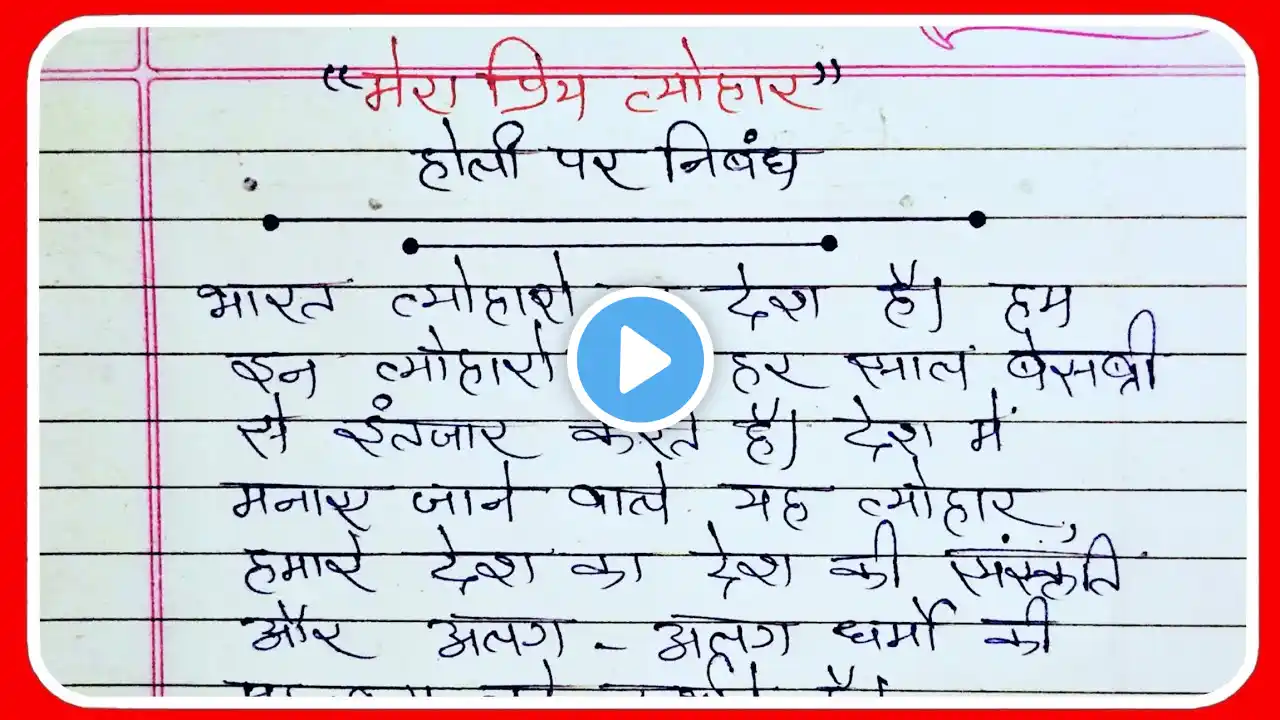 “मेरा प्रिय त्योहार”
होली पर निबंध
भारत त्योहारो देश है। हम
इन त्योहारो हर साल बेसब्री
से इंतजार करते है। देश में
मनाए जाने वाले यह त्योहार,
हमारे देश का देश की संस्कृति
और अलग - अलग धर्मो की